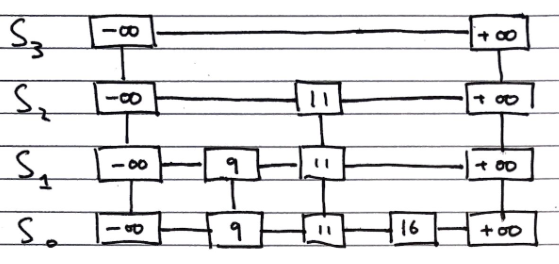 S₃ -∞ +∞
S₂ -∞ 11 +∞
S₁ -∞ 9 11 +∞
S₀ -∞ 9 11 16 +∞